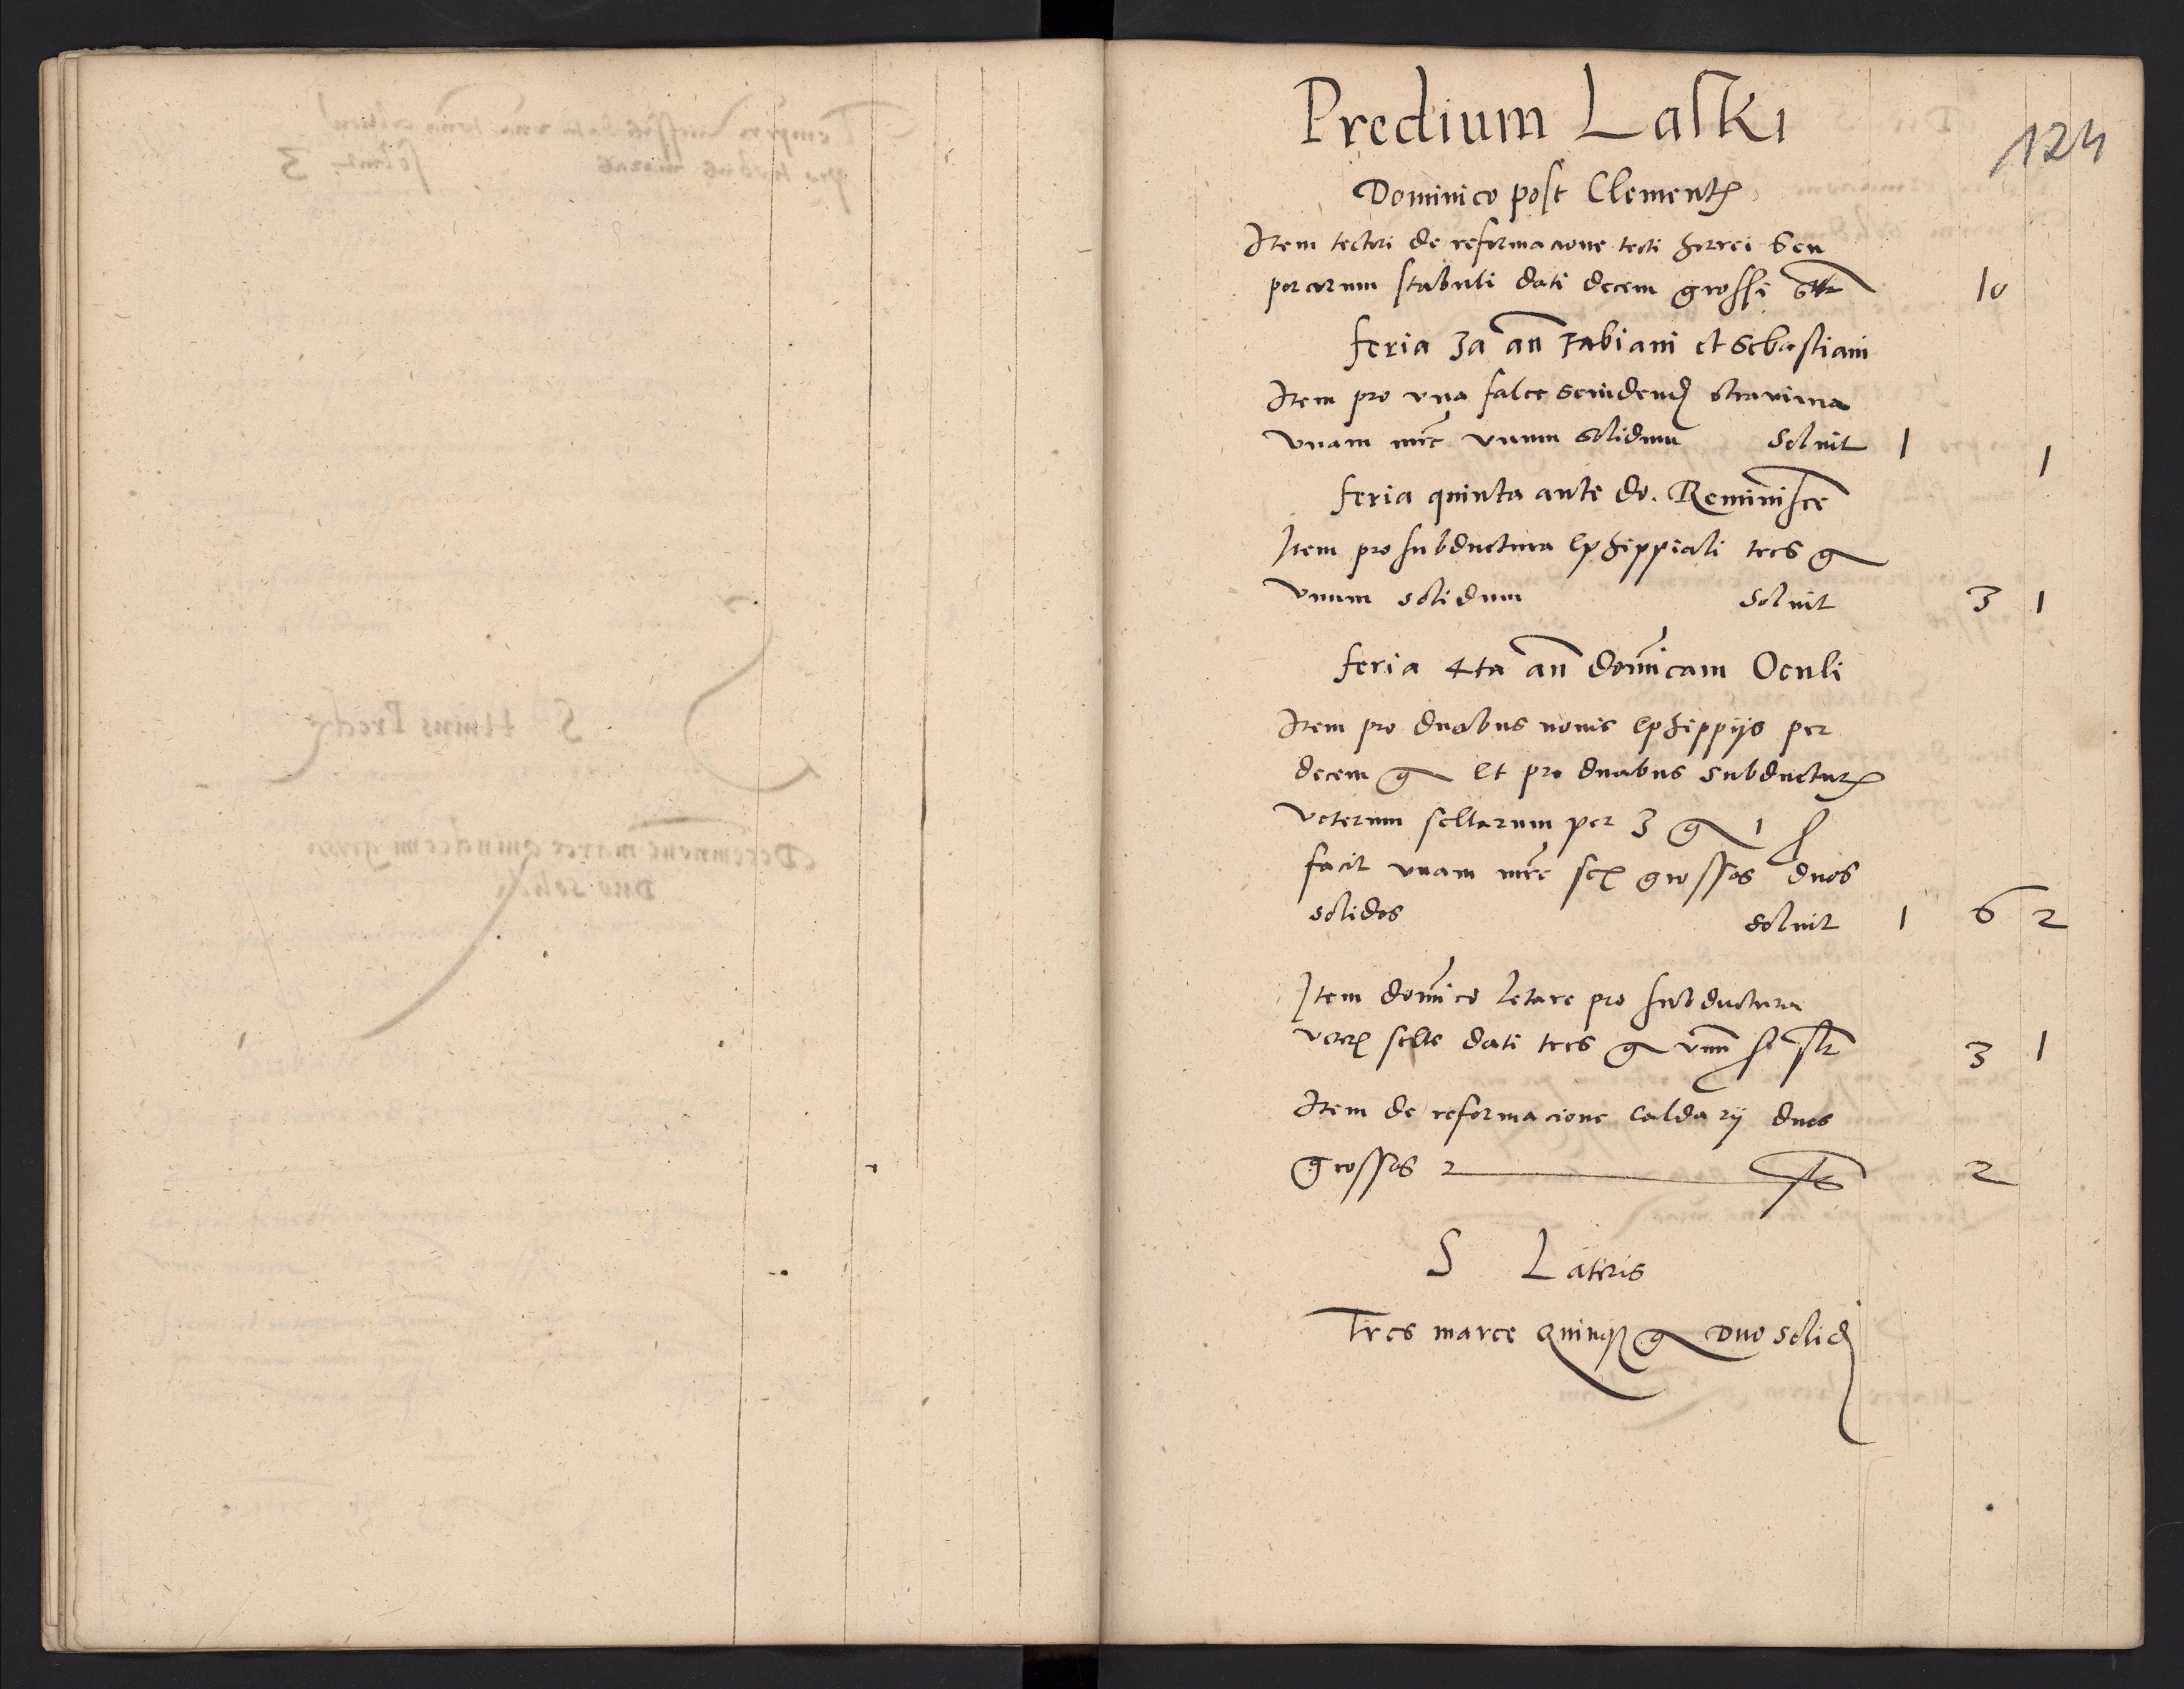 Predium Laski
124
Dominico post Clementis
Item tectori de reformacione tecti horrei seu
porcorum stabuli dati decem grossi 10
feria 3a an Fabiani et Sebastiani
Item pro vna falce scindend stramina
vnam mrc vnum solidum soluit 1 1
feria quinta ante do. Reminisce
Item pro subductura ephippiali tres g
vnum solidum soluit 3 1
feria 4ta an domicam Oculi
Item pro duabus nouis ephippijs per
decem g et pro duabus subductur
veterum sellarum per 3 g 1 s
facit vnam mrc sex grossos duos
solidos soluit 1 6 2
Item domico letare pro subductura
veter selle dati tres g vnu so sol 3 1
Item de reformacione caldarij duos
grossos 2 2
S Lateris
Tres marce quinq g duo solid